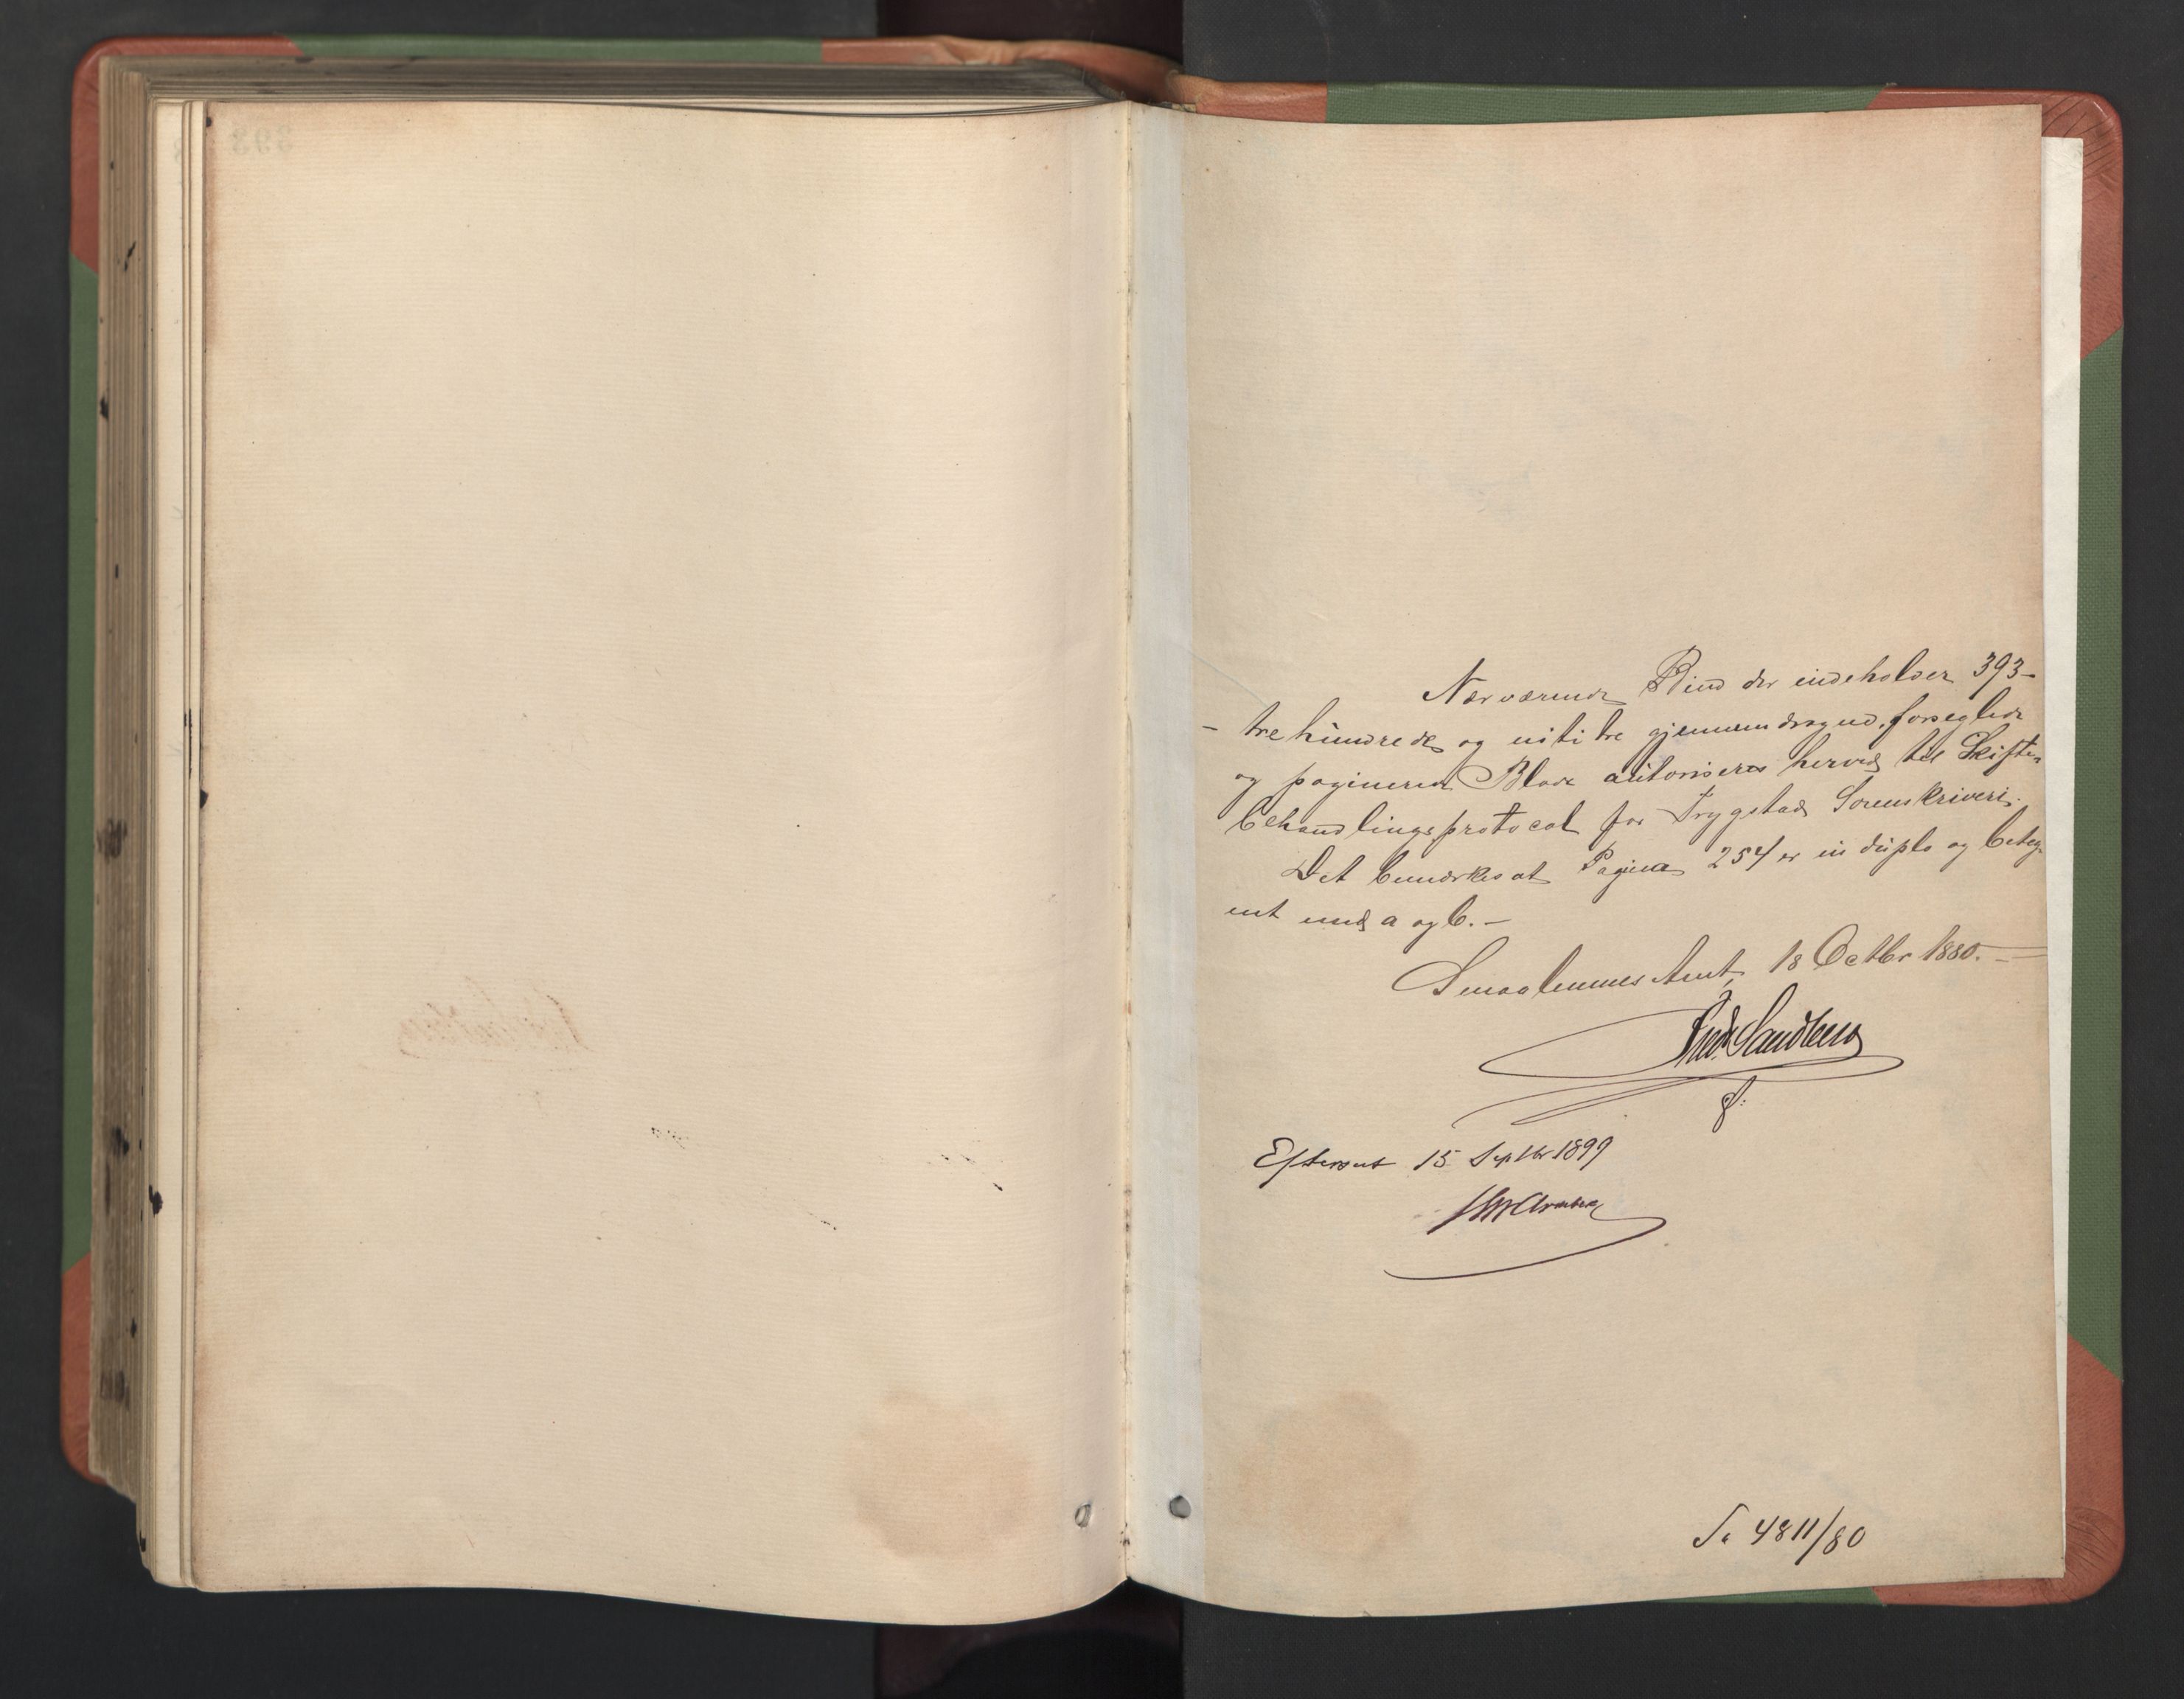 Nærværende Bind der indeholder 393-
- tre hundrede og niti tre gjennemdragne, forseglede
og paginerede Blade autoriseres herved til Skifte-
behandlingsprotocol for Trygstad Sorenskriveri.
Det bemærkes at Pagina 254 er in duplo og beteg-
net med a og b. -
Smaalenenes Amt, 18 Octbr 1880. -
Fredr Sandberg
Efterseet 15 Septbr 1899
4811/80